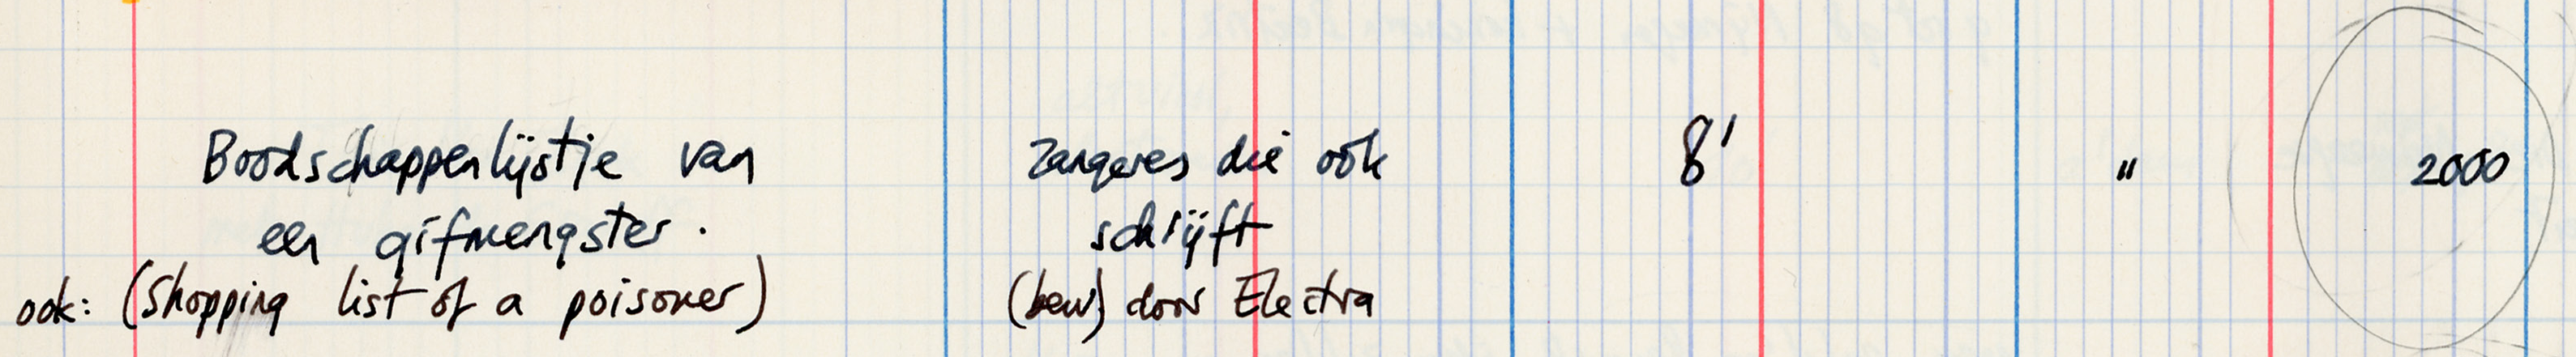 Boodschappenlijstje van zangeres die ook 8' " 2000
een gifmengster. schrijft
ook: (Shopping list of a poisoner) (bew) door Electra